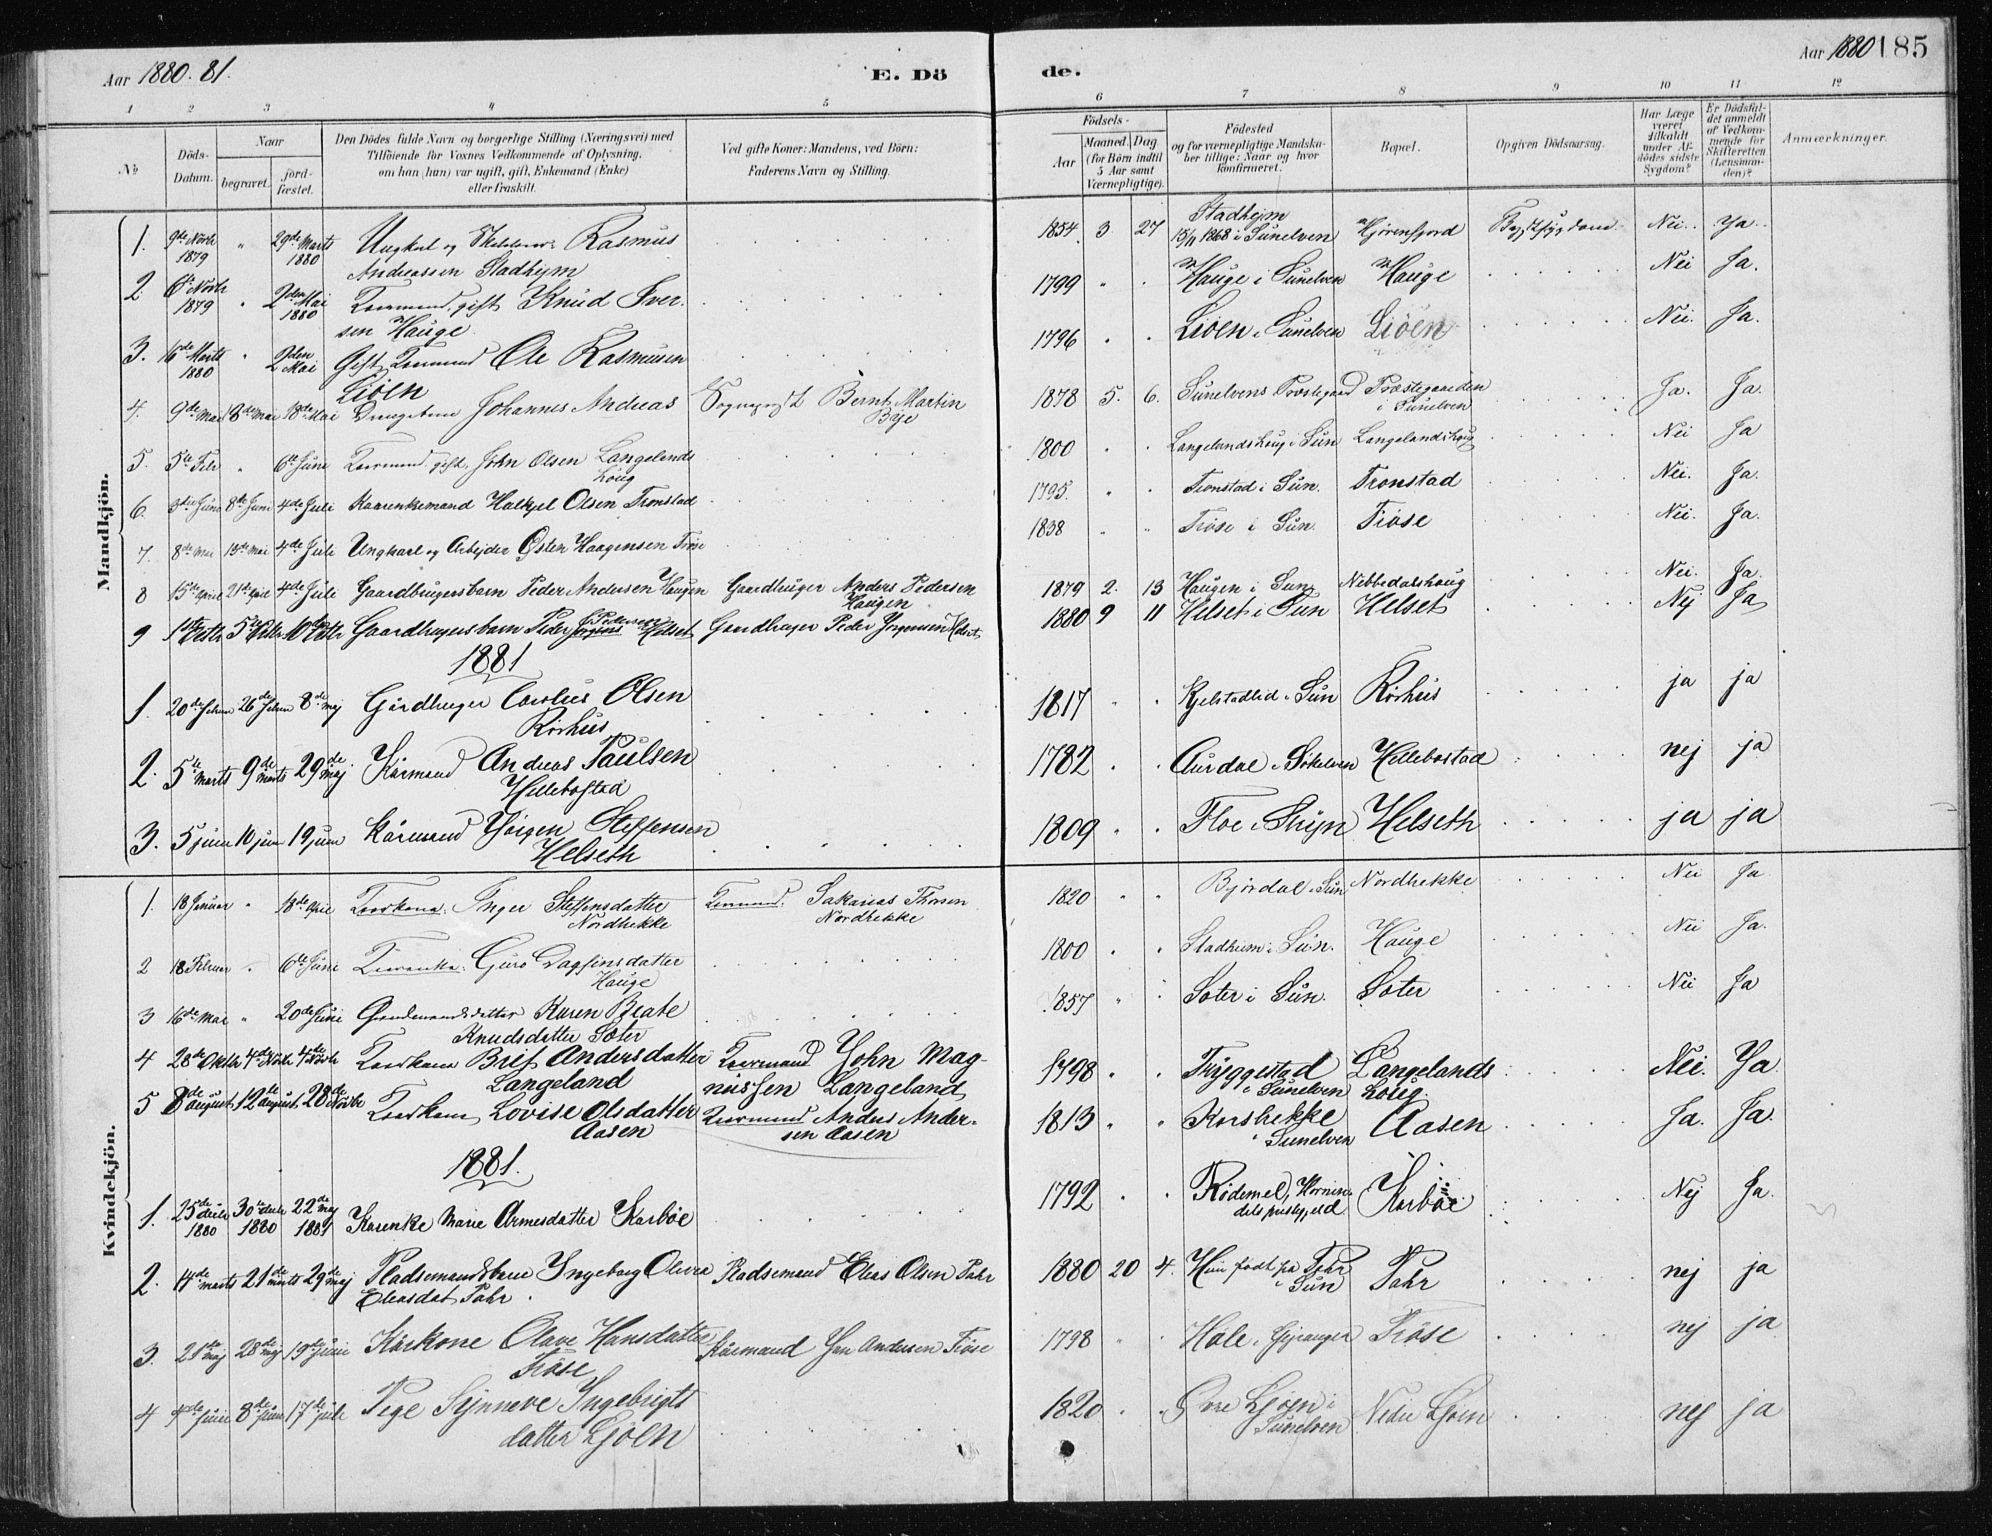 Aar 1880. 81.
E. Dö
de.
Aar 1880
185
1 2 3 4 5 6 7 8 9 10 11 12
No
Döds-Datum.
Naar
begravet.
jord-fæstet.
Den Dödes fulde Navn og borgerlige Stilling (Næringsvei) med
Tilföiende for Voxnes Vedkommende af Oplysning,
om han (hun) var ugift, gift, Enkemand (Enke)
eller fraskilt.
Ved gifte Koner: Mandens, ved Börn:
Faderens Navn og Stilling.
Födsels-
Aar
Maaned. Dag
(for Börn indtil
5 Aar samt
Værnepligtige).
Födested
og for værnepligtige Mandska-
ber tillige: Naar og hvor
konfirmeret.
Bopæl.
Opgiven Dödsaarsag.
Har Læge
været
tilkaldt
under Af-
dödes sidste
Sygdom?
Er Dödsfal-
det anmeldt
af Vedkom-
mende for
Skifteretten
(Lensman-
den)?
Anmærkninger.
Mandkjön.
1. 9de Novb 1879 " 29de Marts 1880 Ungkarl og Rasmus
Andreassen Stadheim 1854 3 27 Stadheim
15/11 1868 i Sunelven Hjørenfjord Nei. Ja.
2. 6te Novbr 1879 " 2den Mai 1880 gift Knud Iver-
sen Hauge 1799 " . Hauge i Sunelven Hauge Nei Ja.
3. 16de Marts 1880 " 2den Mai Gift Ole Rasmusen
Liöen 1796 . . Liöen i Sunelven Liöen Nei. Ja.
4. 9de Mai 18de Mai 18de Mai Johannes Andreas Bernt Martin
Böje 1878 5. 6. Sunelvens Præstegaard Præstegaarden
i Sunelven Ja. Ja.
5. 5te Febr " 6te Juni gift, John Olsen Langelands
houg 1800 . . Langelandshoug i Sun Langelandshoug Nei Ja
6. 3die Juni 8de Juni 4de Juli Kaarenkemand Halkjel Olsen Tronstad 1795. " . Tronstad i Sun. Tronstad Nei. Ja.
7. 8de Mai 13de Mai 4de Juli Ungkarl og Arbejder Østen Haagensen Tröse 1838 " " Tröse i Sun Tröse Nei. Ja.
8 15de April 21de April 4de Juli Gaardbrugersbarn Peder Andersen Haugen Gaardbruger Anders Pedersen
Haugen 1879 2. 13 Haugen i Sun Nebbedalshaug Nei. Ja.
9 Gaardbrugersbarn Peder Pedersen Helset Gaardbruger Peder Jørgensen Helset 1880 9 11 Helset i Sun Helset Nej Ja
1881
1. 20de 26de 8de maj Gårdbruger Carolus Olsen
Körhus 1817 " . Kjelstadlid i Sun Körhus ja ja
2. 5te marts 9de marts 29de maj Kårmand Andreas Paulsen
Hellebostad 1782 . . Aurdal i Søkelven Hellebostad nej ja
3. 5 juni 10 juni 19 juni Kårmand Jörgen Steffensen
Helseth 1809 . . Floe i Stryn Helseth ja ja
Kvindekjön.
1. 18 Januar " 18de April Inger Steffensdatter
Nordhekke Sakarias Thorsen
Nordhekke 1820 " " Bjørdal i Sun Nordhekke Nei Ja
2 18 Februar " 6te Juni Guro Dagfinsdatter
Hauge 1800 " . Stadheim i Sun. Hauge Nei Ja.
3 16de Mai " 20de Juni Karen Beate
Knudsdatter Söter 1857 " . Söter i Sun. Söter Nei Ja
4 28de Oktbr 4de Novbr 4de Novbr Brit Andersdatter
Langeland John Mag-
nussen Langeland 1798 " . Tryggestad
i Sunelven Langelands
houg. Nei. Ja.
5 8de august 12te august 28de Novbr Lovise Olsdatter
Aasen Anders Ander-
sen Aasen 1813 " " Korsbrekke
i Sunelven Aasen Ja. Ja.
1881.
1. 25de decbr 1880 30te decbr 1880 22de maj 1881 Karenke Marie Arnesdatter Korböe 1792 . . Rödemel, Hornin-
dals præstgjeld Korböe Nej Ja.
2. 14de marts 21de marts 29de maj Pladsemandsbarn Ingeborg Olivia
Eliasdat Pahr. Pladsemand Elias Olsen Pahr 1880 20 4. Hun født på Pahr
i Sun Pahr nej ja
3. 21de maj 28de maj 19de Juni Kårkone Olave Hansdatter
Tröse Kårmand Jon Andersen Tröse 1798 " . Hole i Gejranger Tröse nej ja
4 4de juni 8de juni 17de juli Pige Synneve Ingebrigts
datter Ljöen 1820 . . Övre Ljöen i
Sunelven Nedre Ljöen nej ja